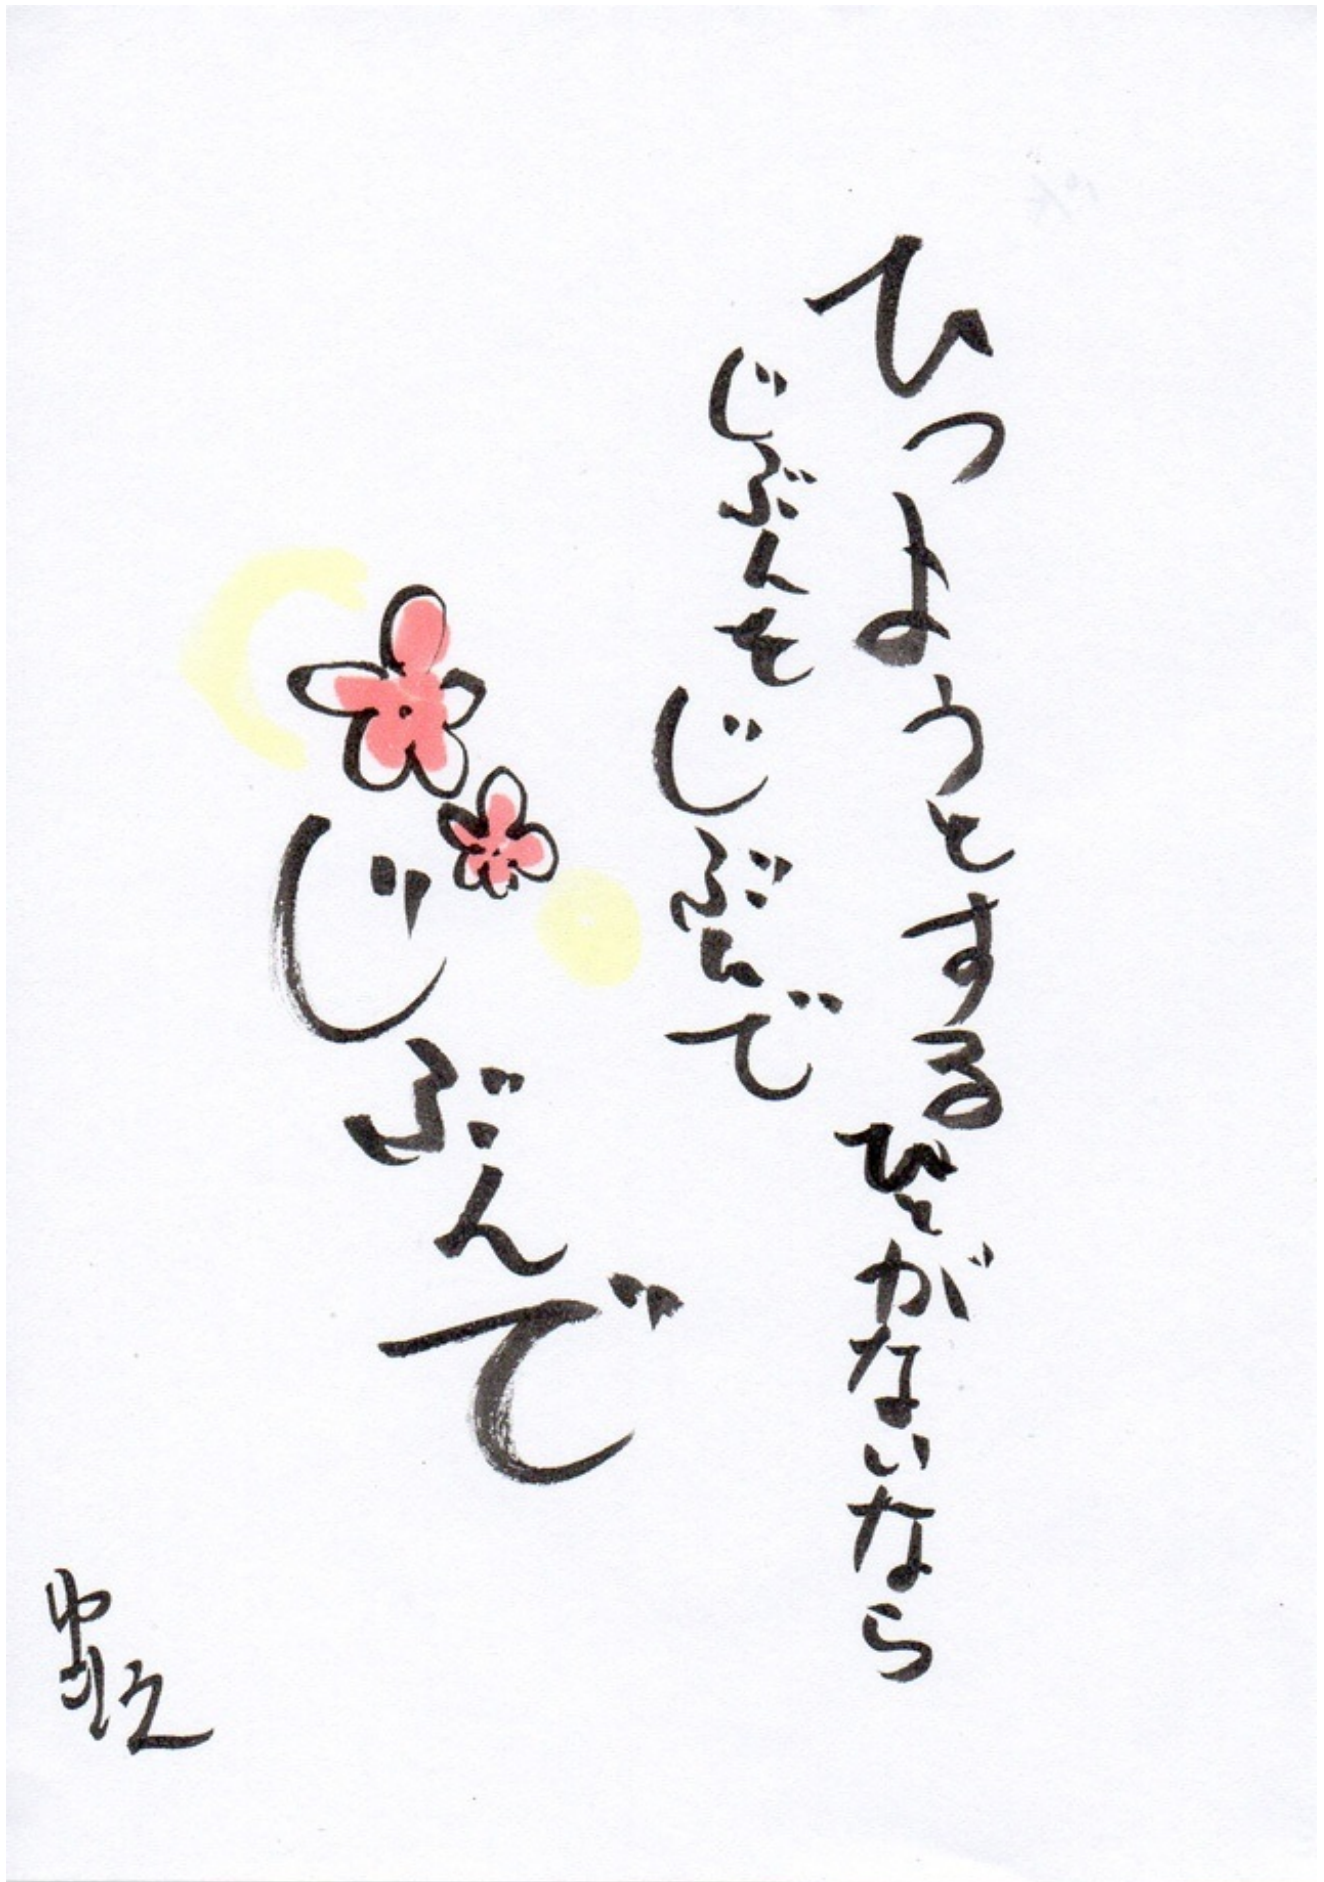 ひつようとするひとがないなら
じぶんを じぶんで
じぶんで